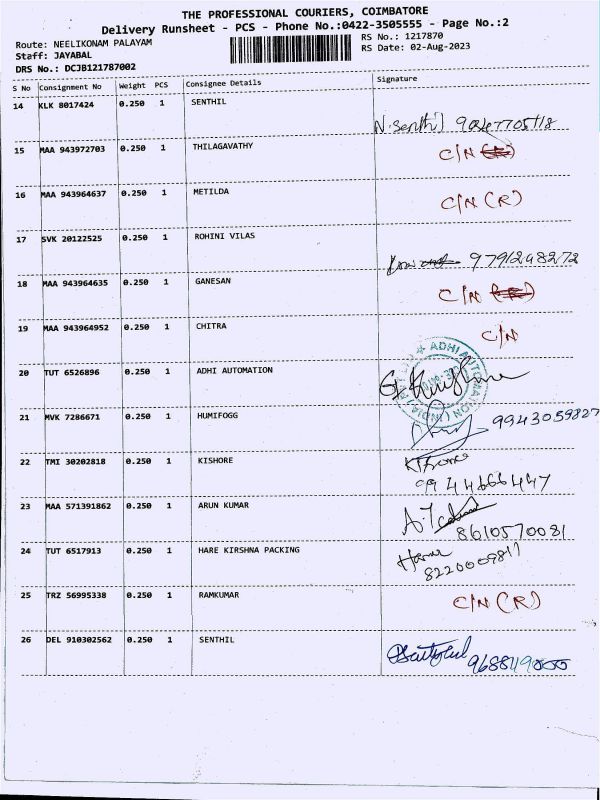 THE PROFESSIONAL COURIERS, COIMBATORE
Delivery Runsheet - PCS - Phone No.:0422-3505555 - Page No.:2
Route: NEELIKONAM PALAYAM
RS No.: 1217870
Staff: JAYABAL
RS Date: 02-Aug-2023
DRS No.: DCJB121787002
S No Consignment No Weight PCS Consignee Details Signature
14 KLK 8017424 0.250 1 SENTHIL
N. Senthil
15 MAA 943972703 0.250 1 THILAGAVATHY C/N
16 MAA 943964637 0.250 1 METILDA C/N (R)
17 SVK 20122525 0.250 1 ROHINI VILAS
9791298272
18 MAA 943964635 0.250 1 GANESAN C/N
19 MAA 943964952 0.250 1 CHITRA C/N
20 TUT 6526896 0.250 1 ADHI AUTOMATION
ADHI AUTOMATION (INDIA)
21 MVK 7286671 0.250 1 HUMIFOGG
9943059827
22 TMI 30202818 0.250 1 KISHORE
9944666447
23 MAA 571391862 0.250 1 ARUN KUMAR
8610570081
24 TUT 6517913 0.250 1 HARE KIRSHNA PACKING
8220009811
25 TRZ 56995338 0.250 1 RAMKUMAR C/N (R)
26 DEL 910302562 0.250 1 SENTHIL